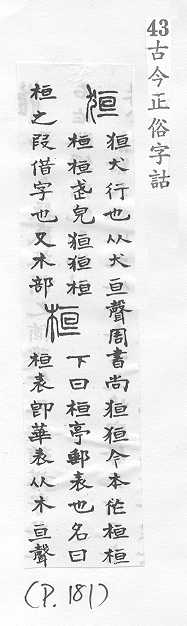 43古今正俗字詁
狟
狟犬行也从犬亘聲周書尚狟狟今本作桓桓
桓桓武皃狟狟桓
桓之叚借字也又木部
桓
下曰桓亭郵表也名曰
桓表卽華表从木亘聲
(P.181)